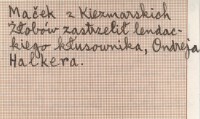 Maćek z Kiezmarskich
Żłobów zastrzelił lendac-
kiego kłusownika, Ondreja
Halkera.